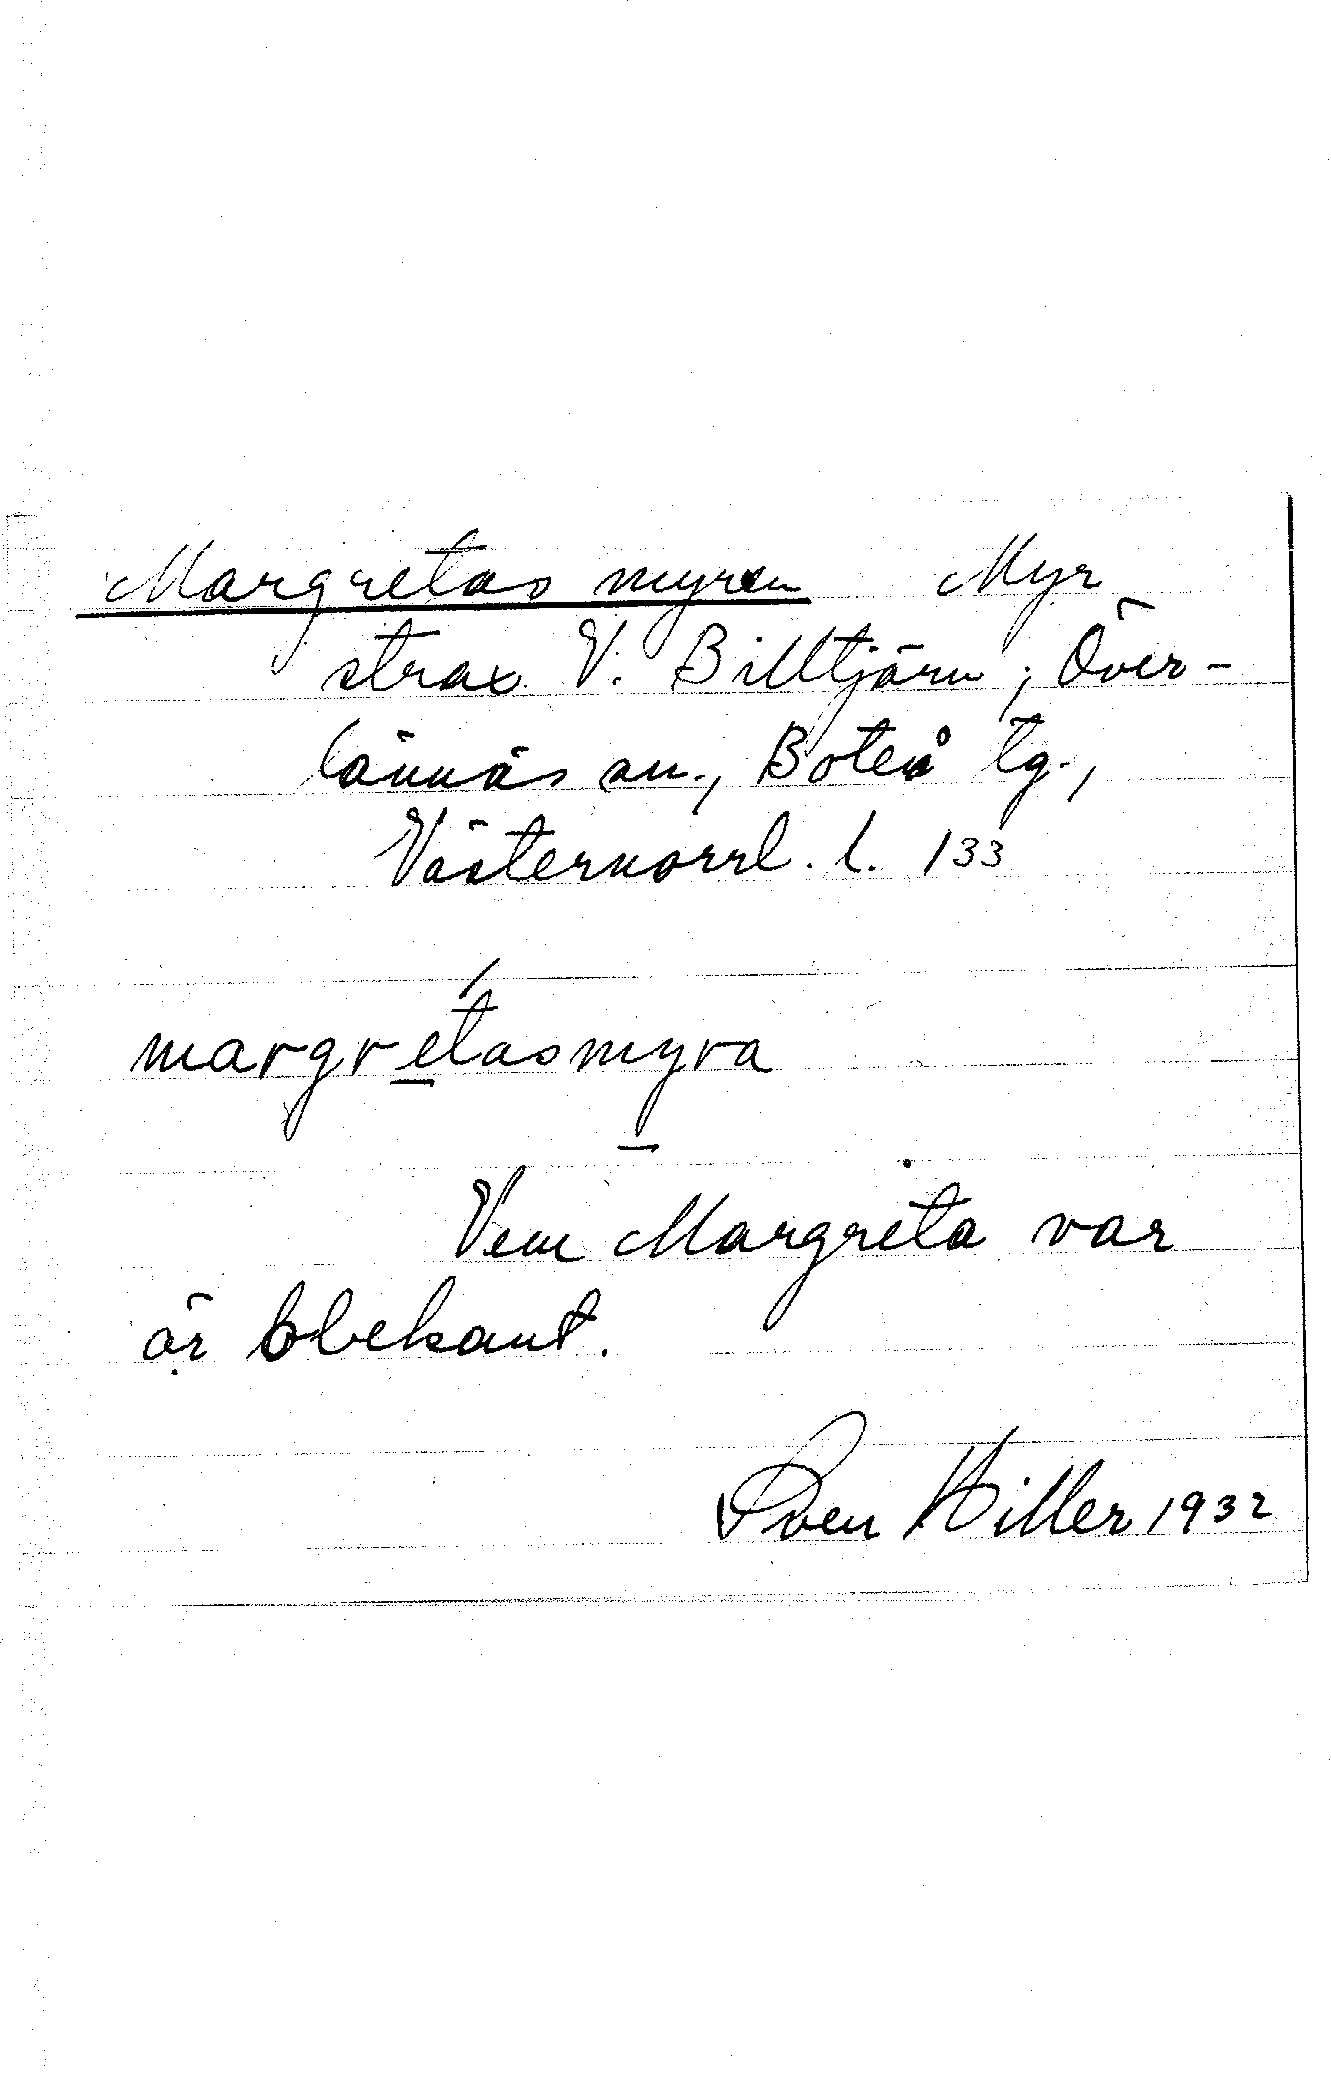 Margretas myren Myr
strax V. Billtjärn; Över-
lännäs sn., Boteå tg.,
Västernorrl. l. 133
margretasmyra
Vem Margreta var
är obekant.
Sven Hiller 1932